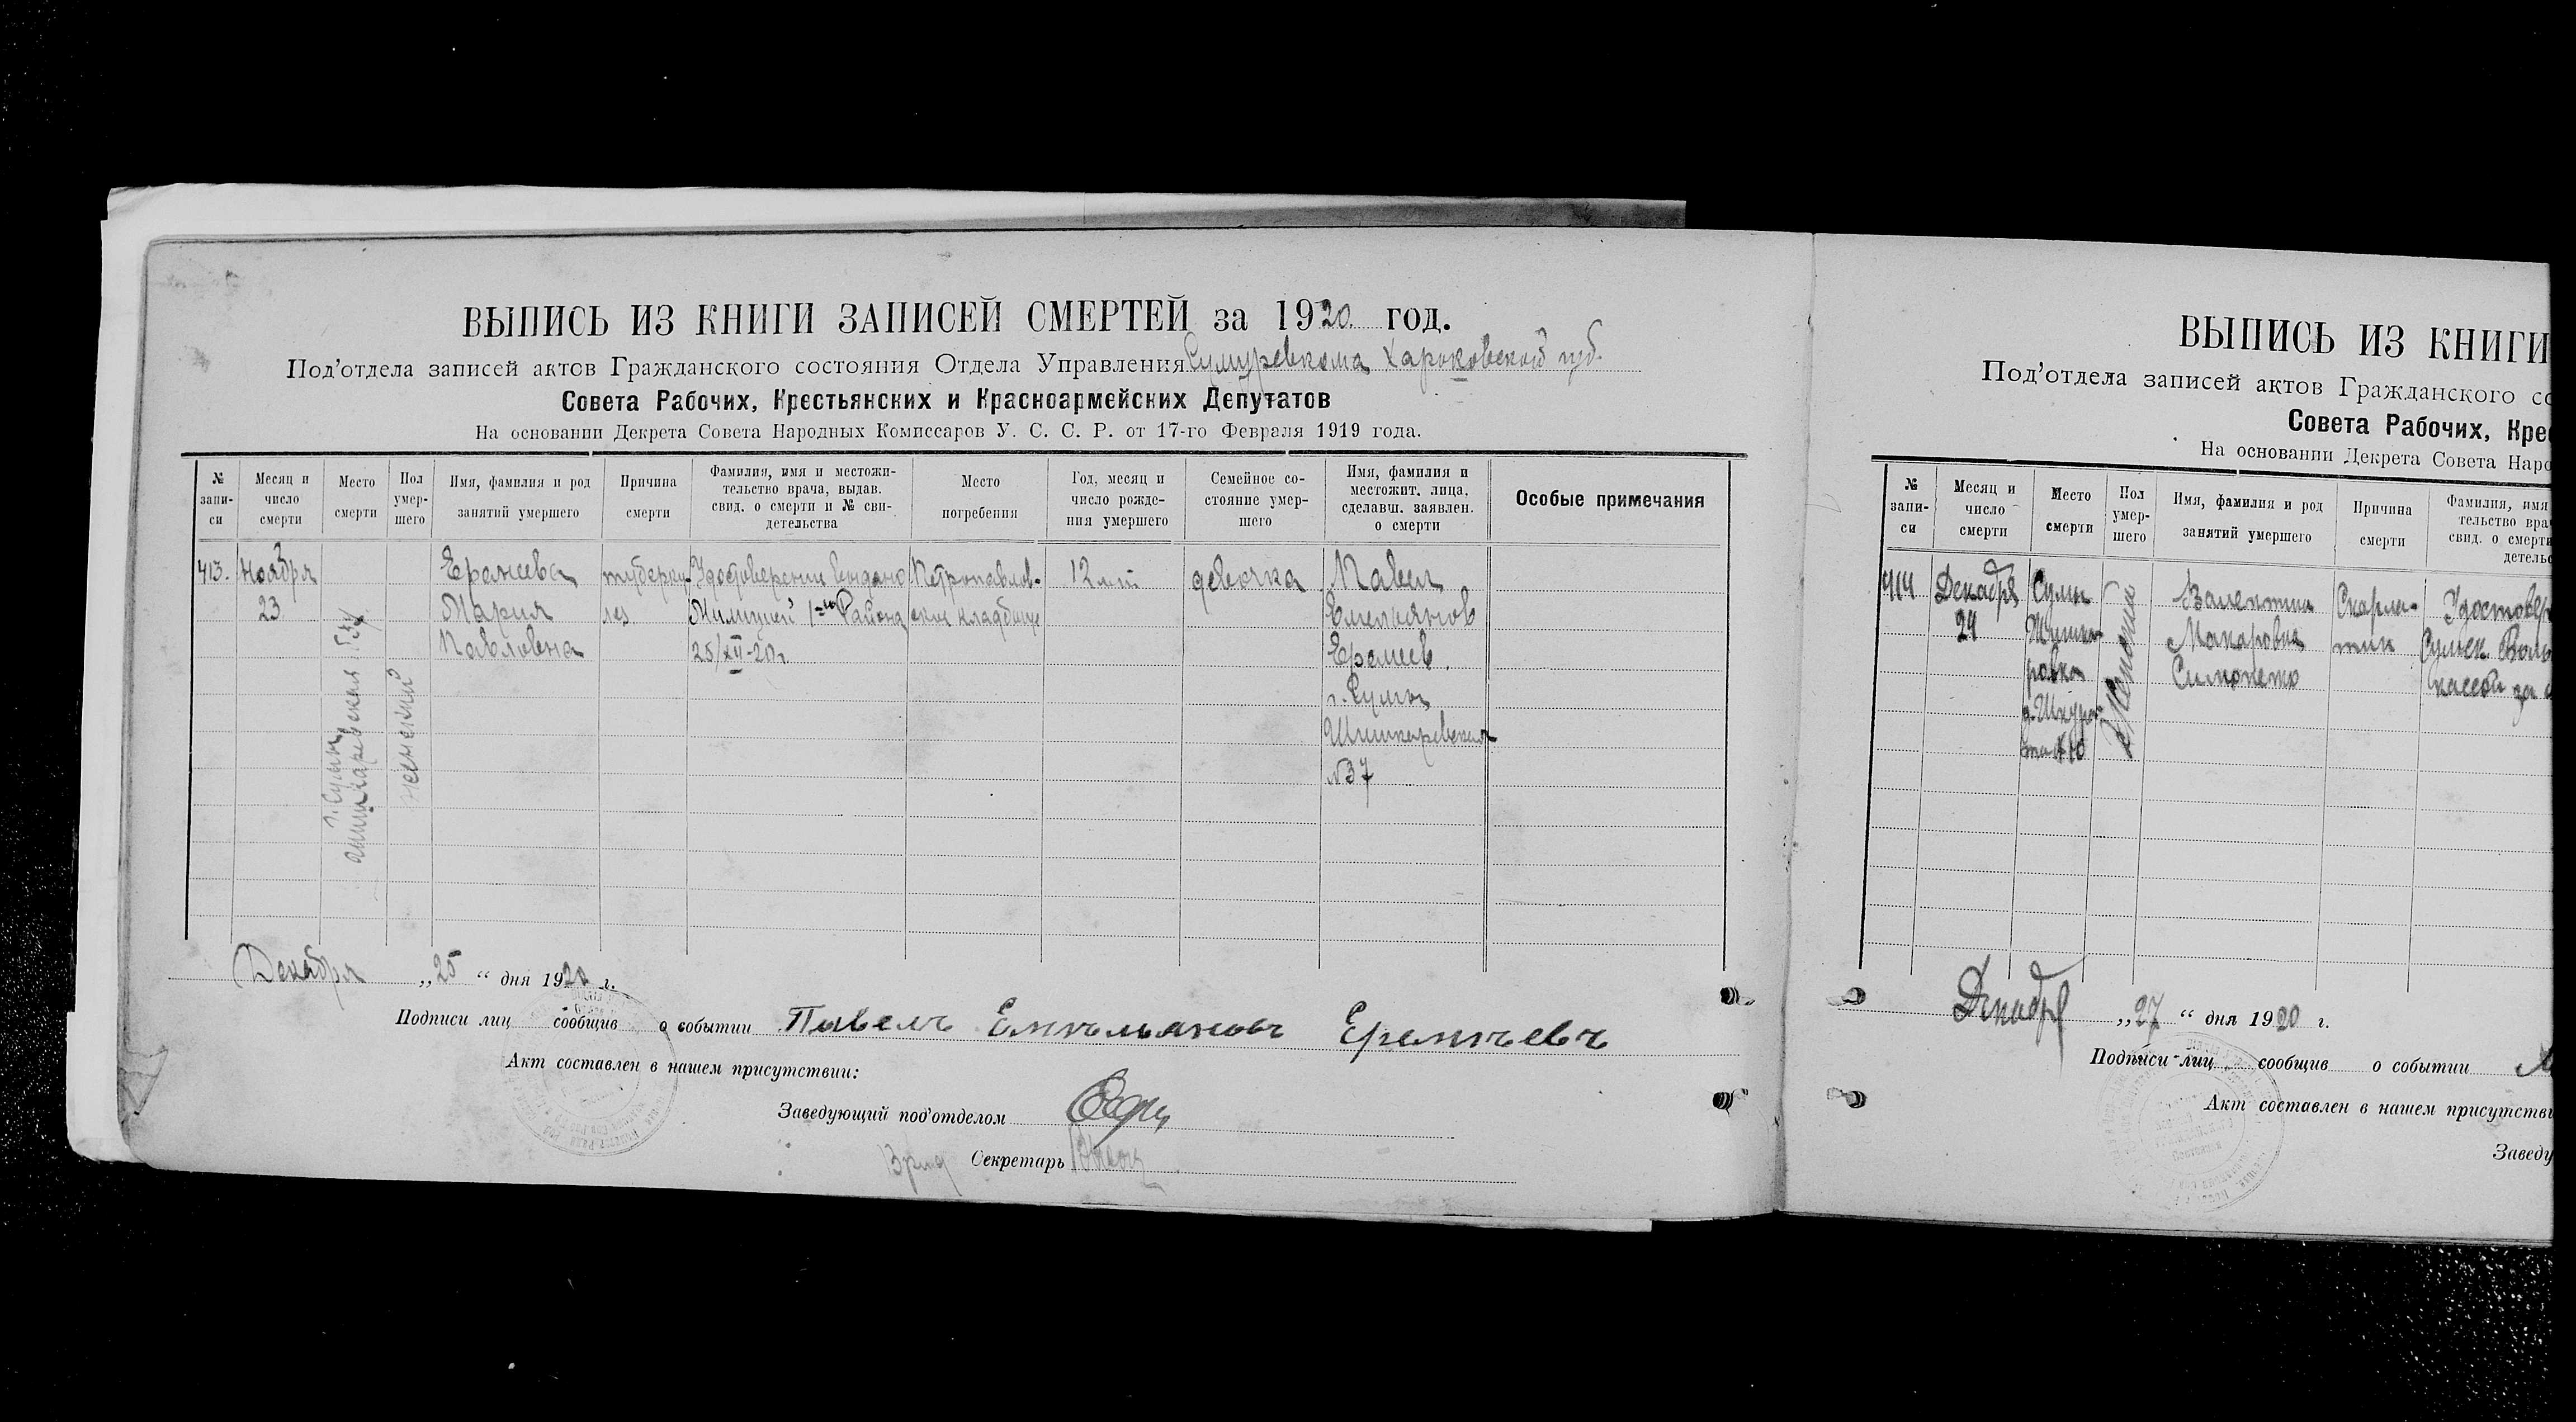 ВЫПИСЬ ИЗ КНИГИ ЗАПИСЕЙ СМЕРТЕЙ за 1920 год.
Под'отдела записей актов Гражданского состояния Отдела Управления Сумуревкома Харьковской губ.
Совета Рабочих, Крестьянских и Красноармейских Депутатов
На основании Декрета Совета Народных Комиссаров У. С. С. Р. от 17-го Февраля 1919 года.
№ запи-
си
Месяц и
число
смерти
Место
смерти
Пол
умер-
шего
Имя, фамилия и род
занятий умершего
Причина
смерти
Фамилия, имя и местожи-
тельство врача, выдав.
свид. о смерти и № сви-
детельства
Место
погребения
Год, месяц и
число рожде-
ния умершего
Семейное со-
стояние умер-
шего
Имя, фамилия и
местожит. лица,
сделавш. заявлен.
о смерти
Особые примечания
413.
Ноября
23
г. Сумы,
Шишкаревская
женский
Еремеева
Мария
Павловна
туберку
лез
Удостоверение выдано
Милицией 1-го Района
25/XII-20г.
Петропавлов-
ское кладбище
12 лет
девочка
Павел
Емельянов
Еремеев.
г. Сумы
Шишкаревская
№37
Декабря „25“ дня 1920 г.
Подписи лиц сообщив о событии Павелъ Емельяновъ Еремѣевъ
Акт составлен в нашем присутствии:
Заведующий под'отделом
Врид Секретарь
ВЫПИСЬ ИЗ КНИГИ
Под'отдела записей актов Гражданского со
Совета Рабочих, Кре
На основании Декрета Совета Наро
№
запи-
си
Месяц и
число
смерти
Место
смерти
Пол
умер-
шего
Имя, фамилия и род
занятий умершего
Причина
смерти
Фамилия, имя
тельство вра
свид. о смерти
детельс
414
Декабря
24
Сумы
№10
женский
Валентина
Макаровна
Симоненко
Скарла-
тин
Удостовер
Сумск. Боль
кассой за
Декабря „27“ дня 1920 г.
Подписи лиц сообщив о событии
Акт составлен в нашем присутстви
Заведу